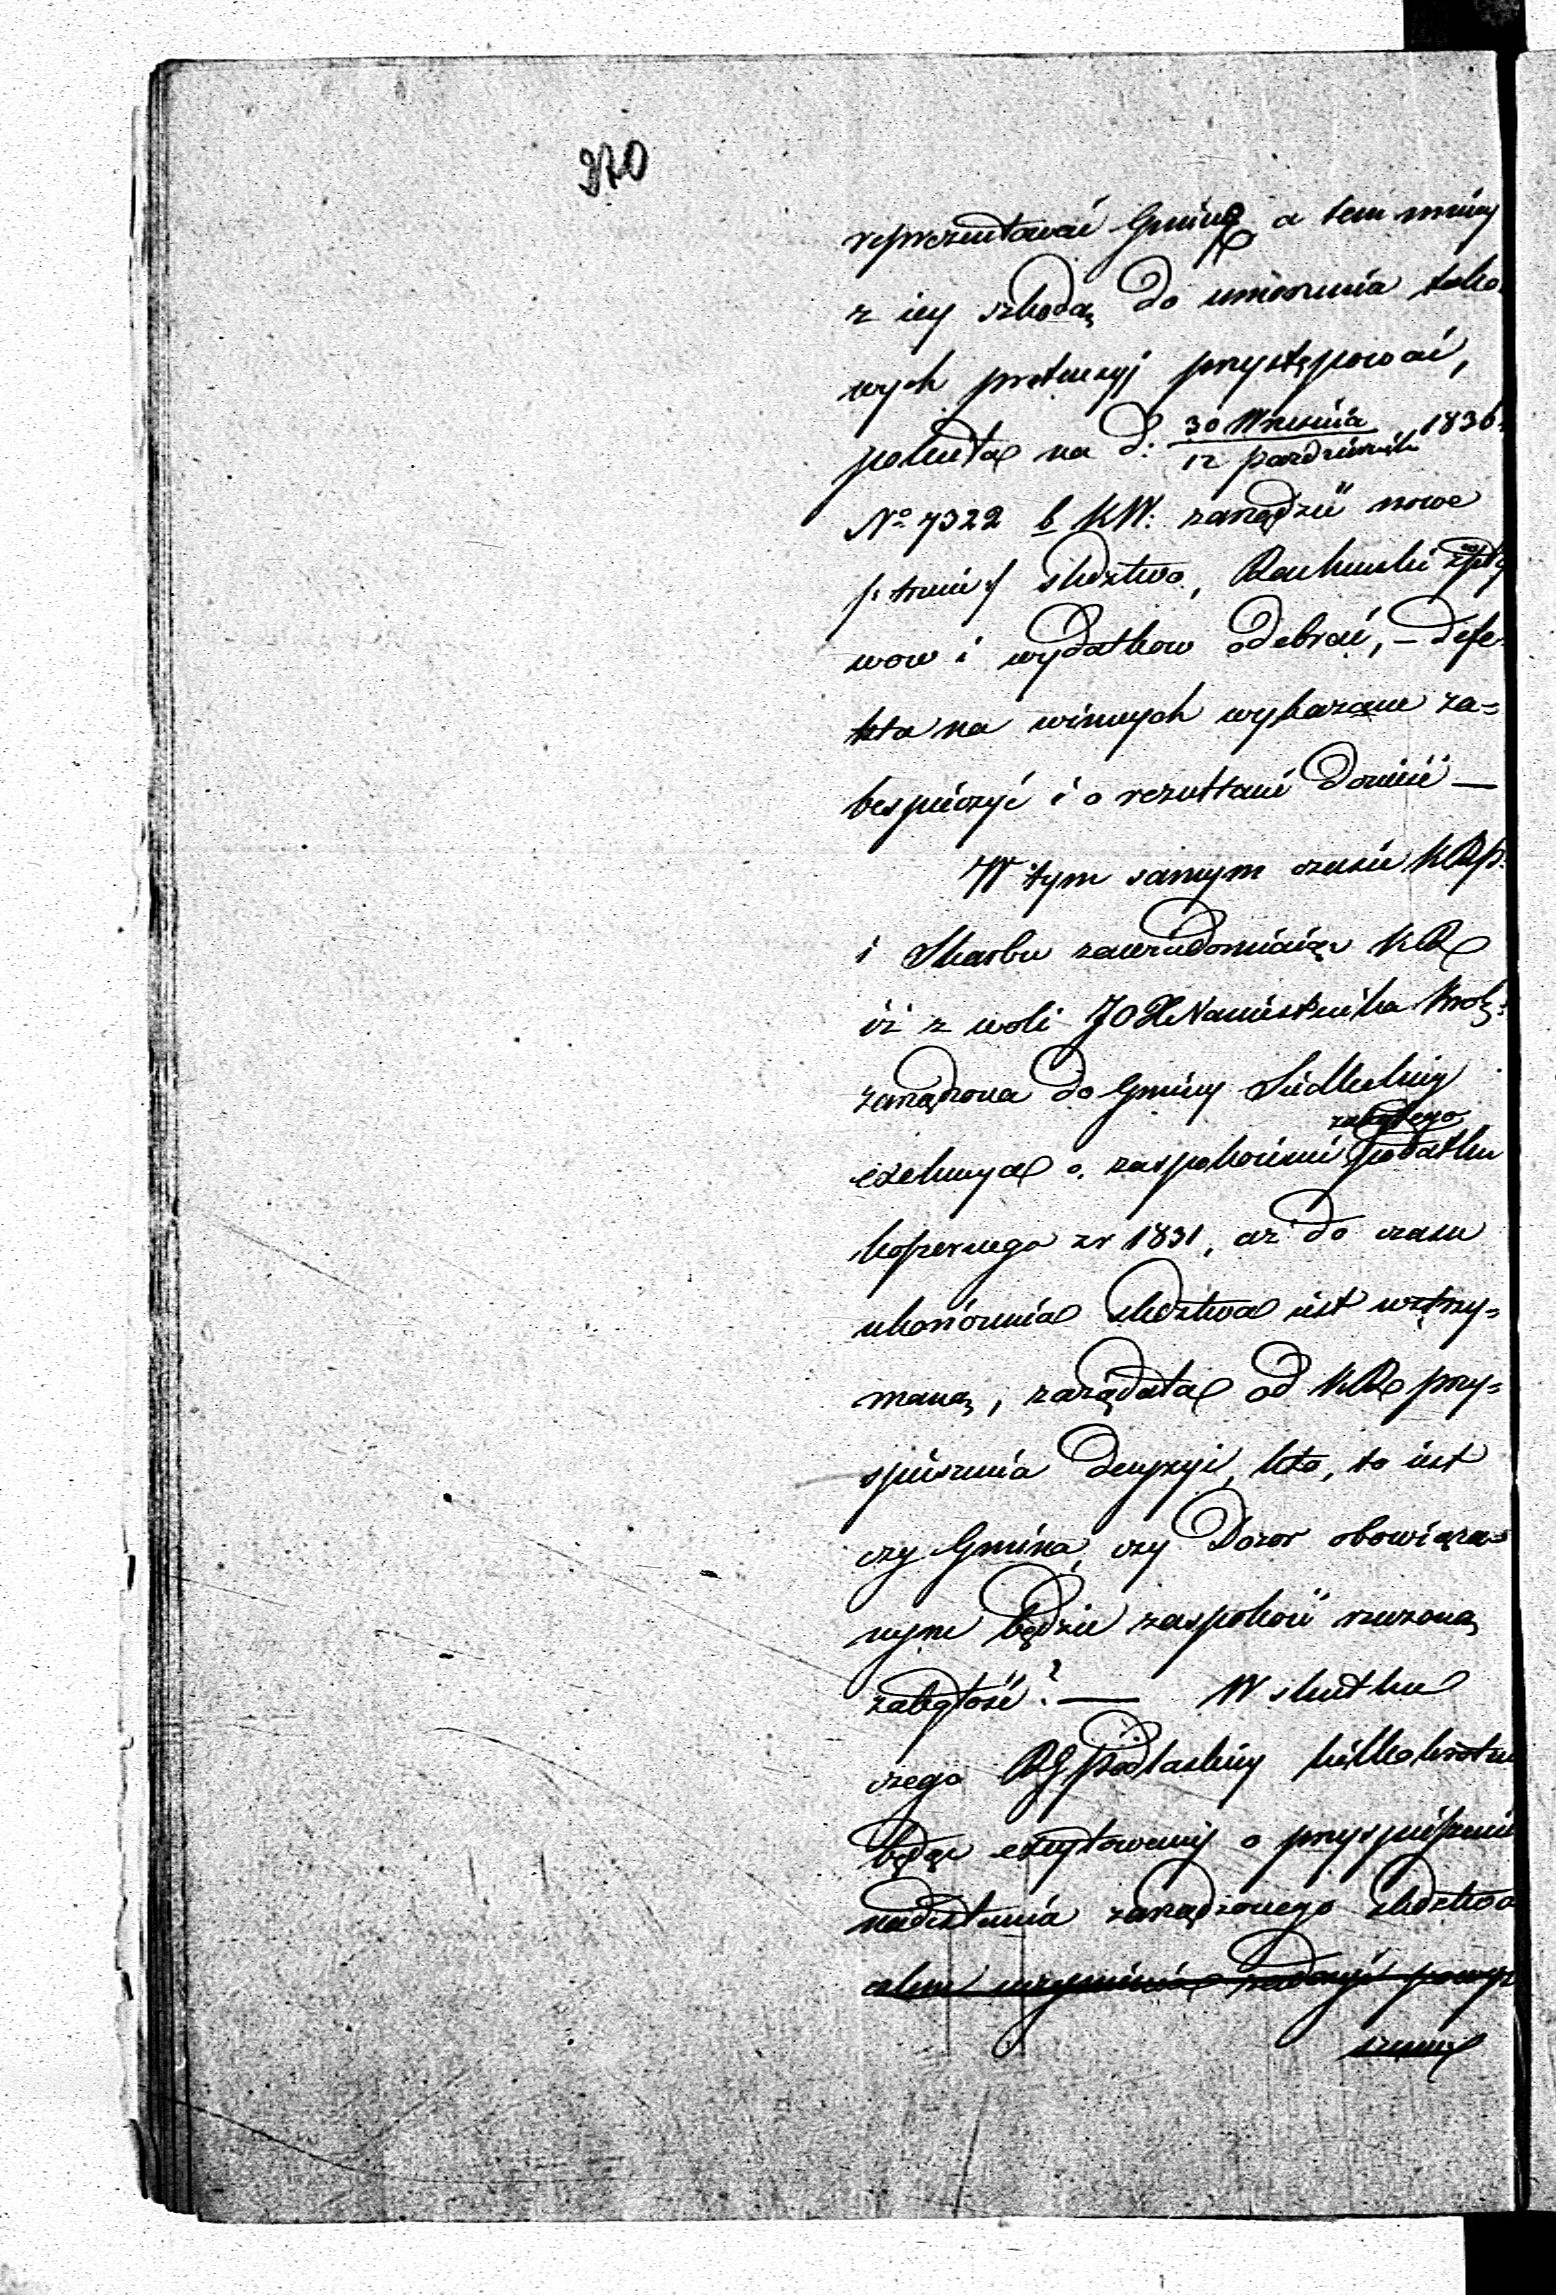 370
reprezentować Gminę a tem mniey
z iey szkodą do umorzenia tako
wych pretensyj przystępować,
poleciła na d: 30 Wrzesnia / 12 pazdziernik 1836.
No 7322 b KW. zarządzić nowe
sledztwo, Rachunki
wow i wydatkow odebrać, – defe-
kta na winnych wykazane za=
bespieczyć i o rezultacie donieść —
W tym samym czasie KRP.
i Skarbu zawiadomiaiąc KR
iż z woli JOX Namiestnika Krol:
zarządzona do Gminy Siedleckiey
zaległego
exekucya o zaspokoienie podatku
koszernego z r 1831, aż do czasu
ukończenia sledztwa iest wstrzy=
maną, zażądała od KR przy=
spieszenia decyzyi, kto, to iest
czy Gmina, czy Dozor obowiąza=
nym będzie zaspokoić rzeczoną
zaległość? — W skutku
czego RG Podlaskiey kilkokrotnie
będąc excytowaney o przyspieszenie
nadesłania zarządzonego sledztwa
celem